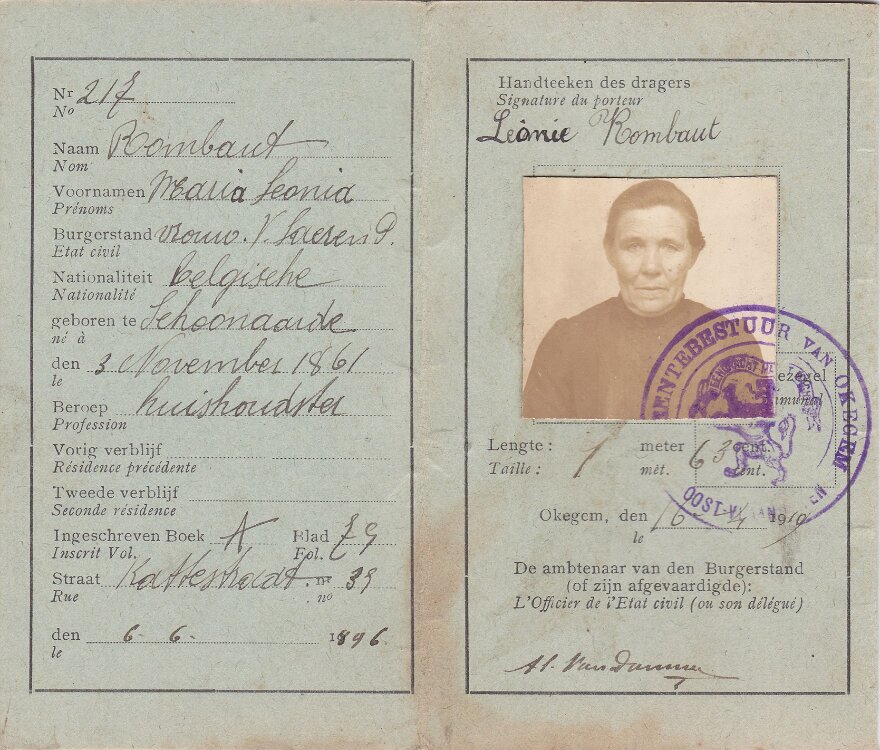 Nr 217
No
Naam Rombaut
Nom
Voornamen Maria Leonia
Prénoms
Burgerstand vrouw. V. Saeren P.
Etat civil
Nationaliteit belgische
Nationalité
geboren te Schoonaarde
né à
den 3 November 1861
le
Beroep huishoudster
Profession
Vorig verblijf
Résidence précédente
Tweede verblijf
Seconde résidence
Ingeschreven Boek A Blad 79
Inscrit Vol. Fol.
Straat Kattestraat nr 39
Rue no
den 6. 6. 1896
le
Handteeken des dragers
Signature du porteur
Leonie Rombaut
GEMENTEBESTUUR VAN OKEGEM
OOST-VLAANDEREN
Lengte : 1 meter 63 cent.
Taille : mèt. cent.
Okegem, den 16 1919
le
De ambtenaar van den Burgerstand
(of zijn afgevaardigde):
L'Officier de l'Etat civil (ou son délégué)
Al. Van Damme